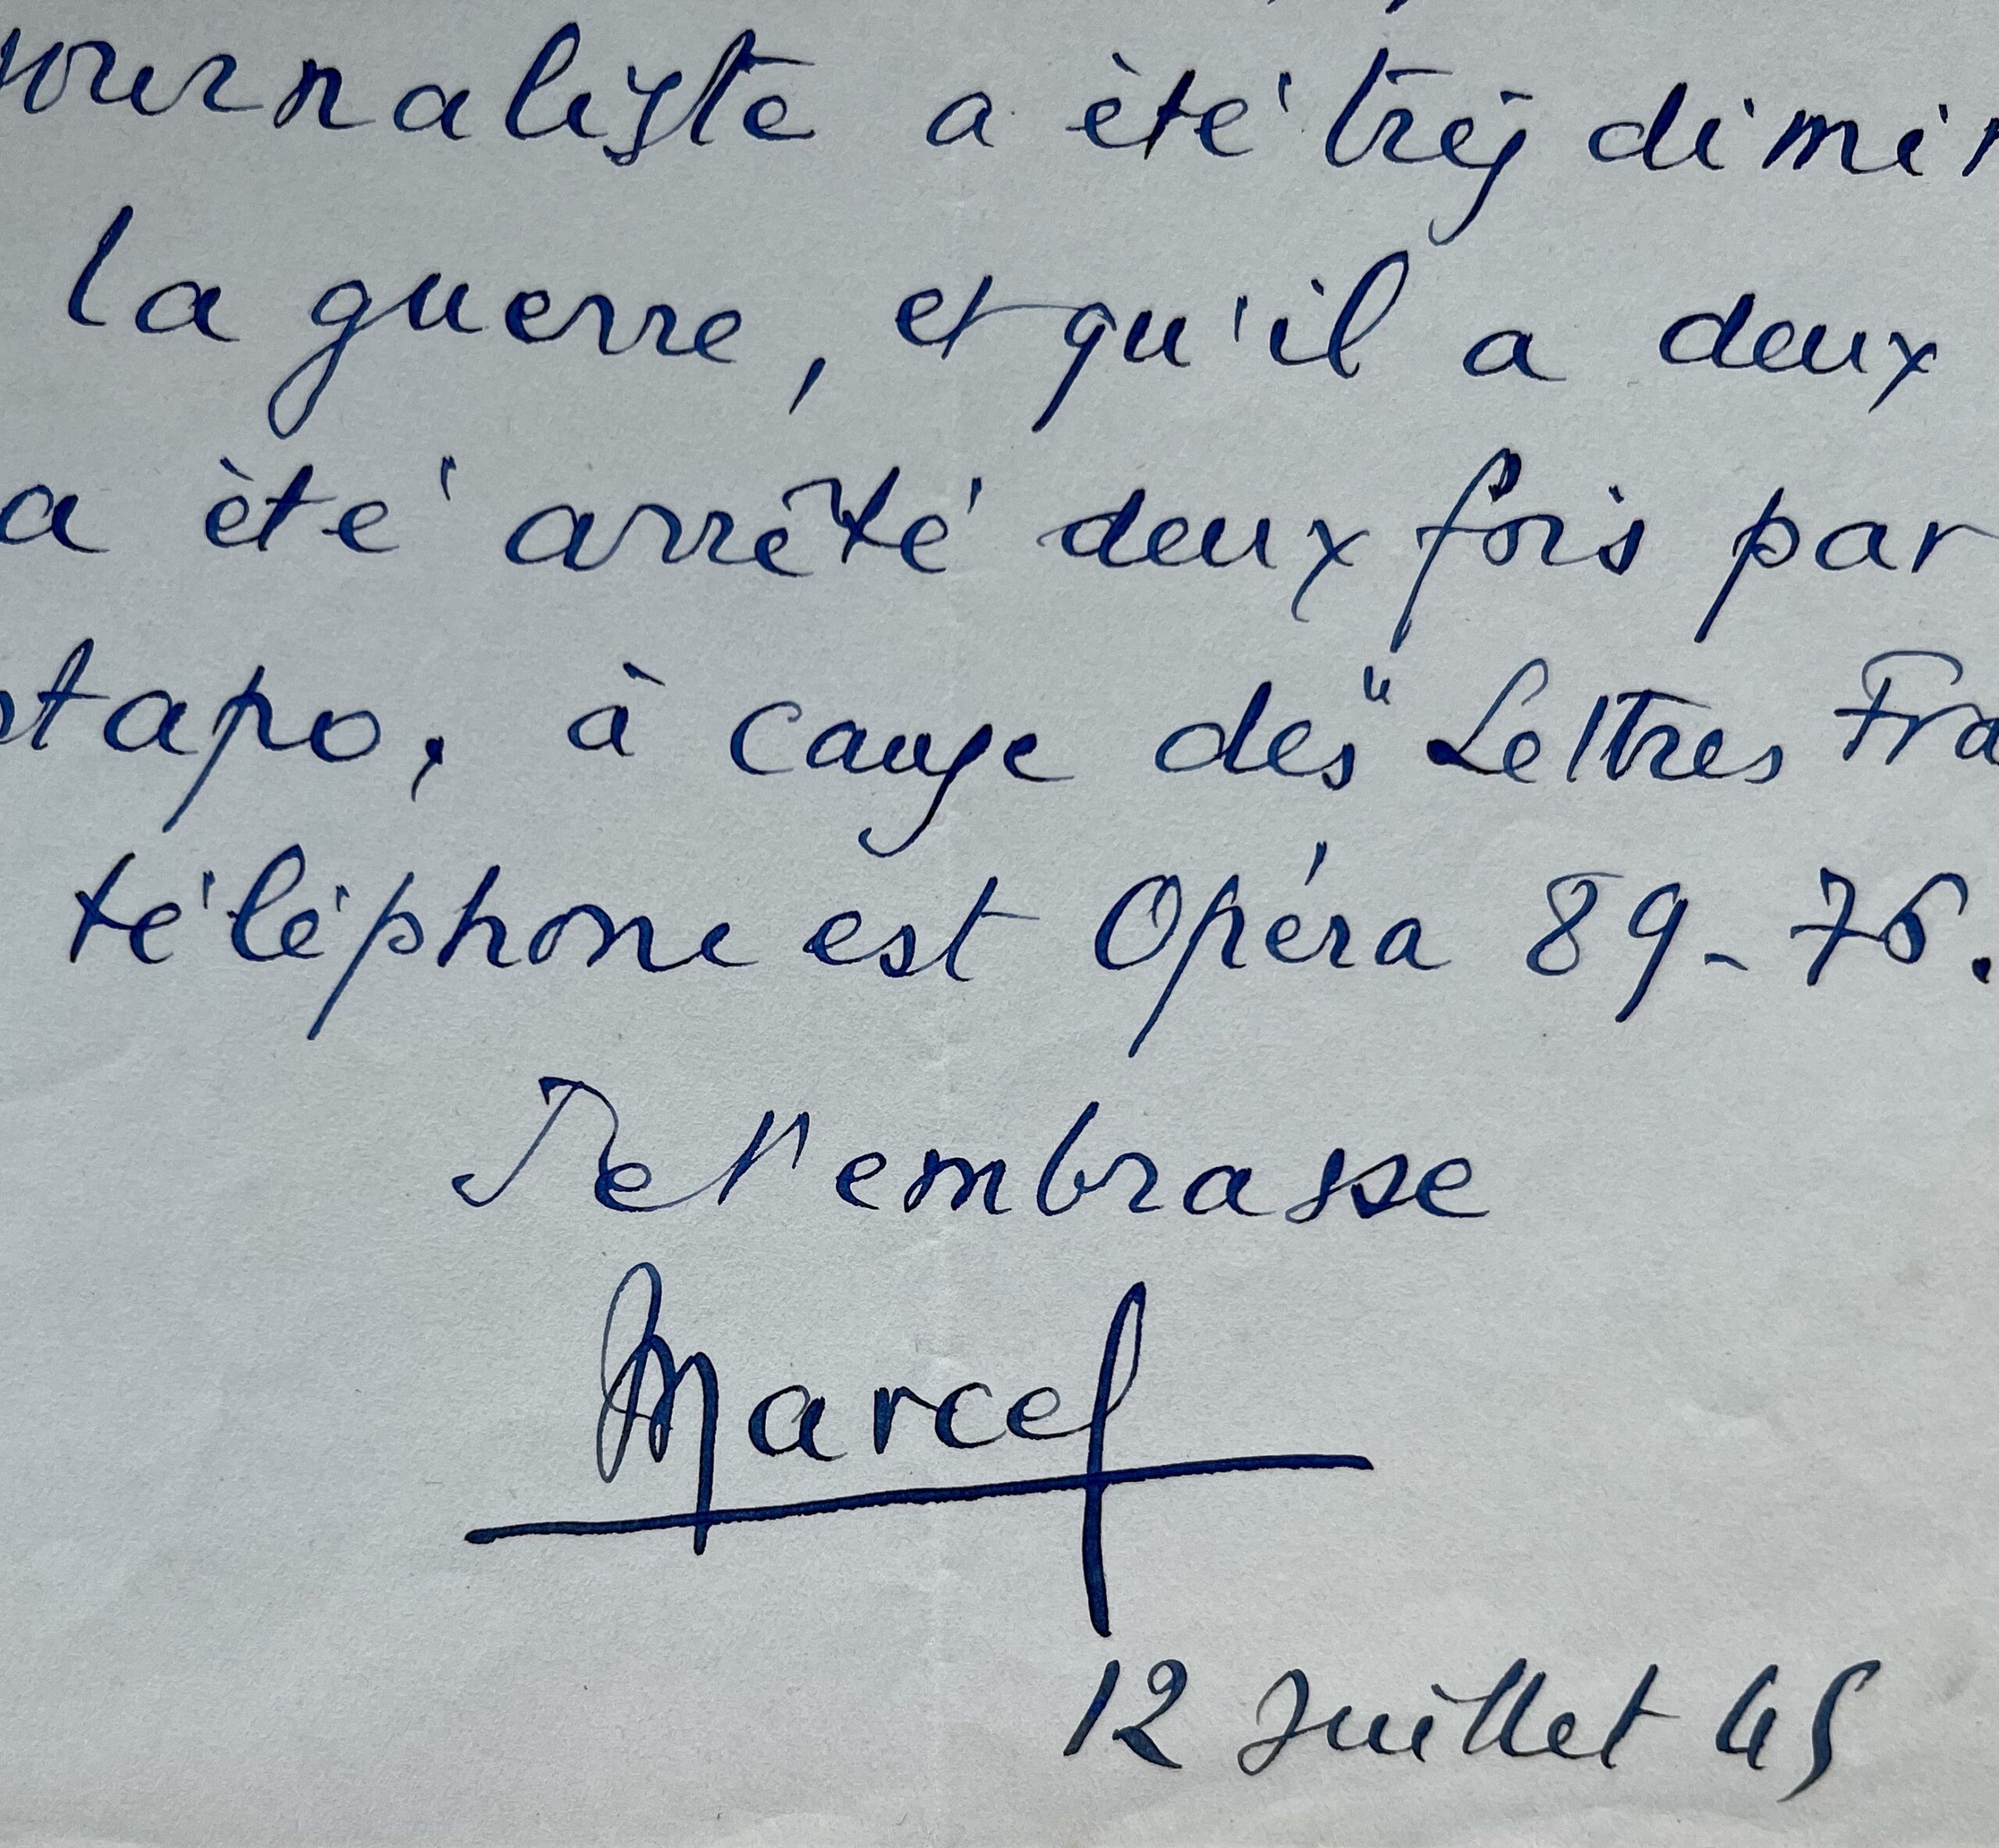 journaliste a été très dimin
la guerre, et qu'il a deux
a été arrêté deux fois par
stapo, à cause des "Lettres Fra
téléphone est Opéra 89-76.
Je t'embrasse
Marcel
12 Juillet 45